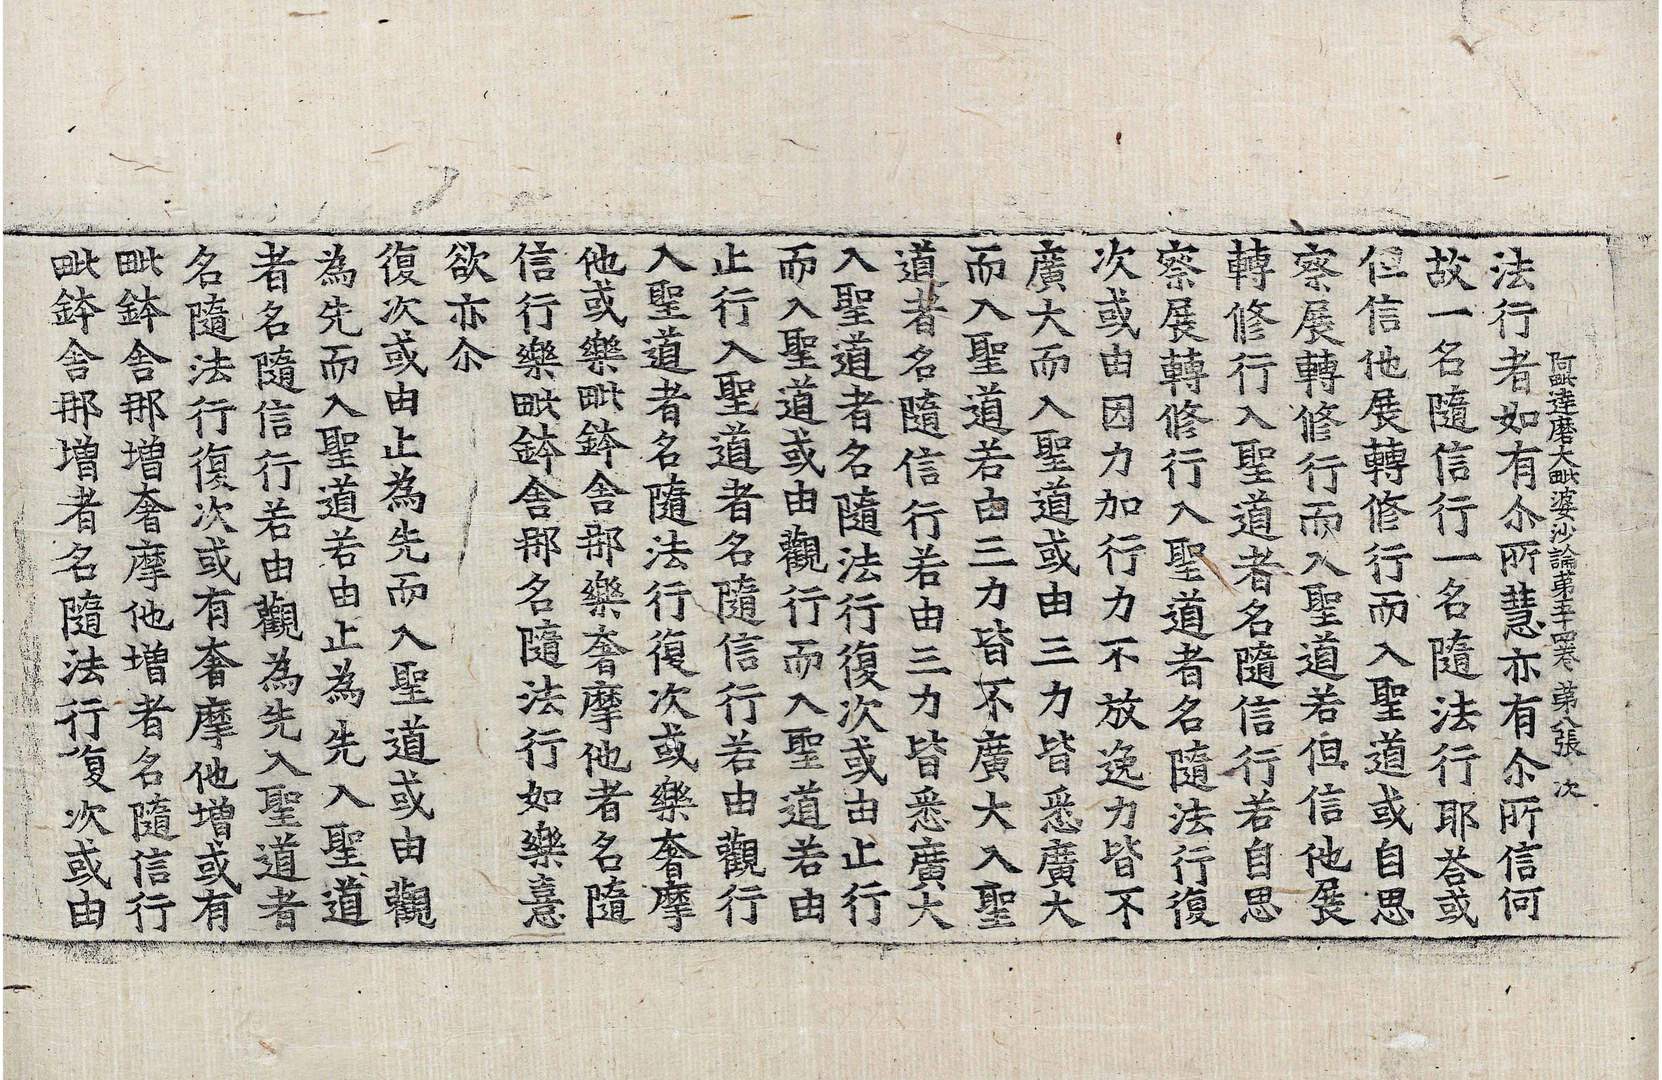 阿毗達磨大毗婆沙論第五十四卷 第八張 次
法行者如有尒所慧亦有尒所信何
故一名隨信行一名隨法行耶荅或
但信他展轉修行而入聖道或自思
察展轉修行而入聖道若但信他展
轉修行入聖道者名隨信行若自思
察展轉修行入聖道者名隨法行復
次或由因力加行力不放逸力皆不
廣大而入聖道或由三力皆悉廣大
而入聖道若由三力皆不廣大入聖
道者名隨信行若由三力皆悉廣大
入聖道者名隨法行復次或由止行
而入聖道或由觀行而入聖道若由
止行入聖道者名隨信行若由觀行
入聖道者名隨法行復次或樂奢摩
他或樂毗鉢舍那樂奢摩他者名隨
信行樂毗鉢舍那名隨法行如樂憙
欲亦尒
復次或由止為先而入聖道或由觀
為先而入聖道若由止為先入聖道
者名隨信行若由觀為先入聖道者
名隨法行復次或有奢摩他增或有
毗鉢舍那增奢摩他增者名隨信行
毗鉢舍那增者名隨法行復次或由